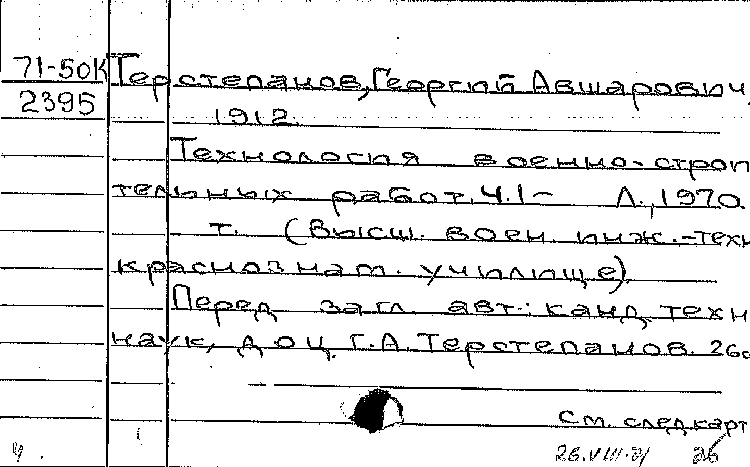 71-50К Терстепанов, Георгий Авшарович,
2395 1912.
Технология военно-строи
тельных работ. Ч.1- Л., 1970.
т. (Высш. воен. инж.-техн
краснознам. училище).
Перед загл. авт.: канд. техн
наук, доц. Г.А. Терстепанов.
См. след. карт
26.VIII.71 26